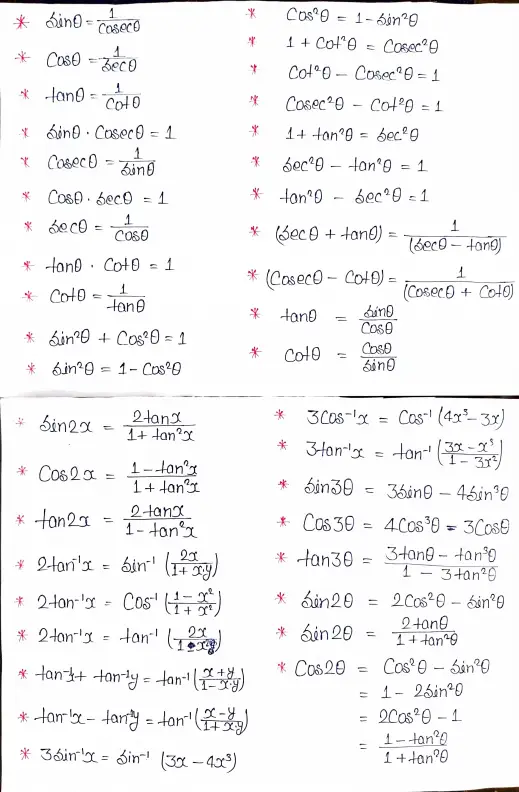 * sinθ = 1/cosecθ
* Cosθ = 1/secθ
* tanθ = 1/Cotθ
* sinθ · Cosecθ = 1
* Cosecθ = 1/sinθ
* Cosθ · secθ = 1
* secθ = 1/Cosθ
* tanθ · Cotθ = 1
* Cotθ = 1/tanθ
* sin²θ + Cos²θ = 1
* sin²θ = 1 - Cos²θ
* Cos²θ = 1 - sin²θ
* 1 + Cot²θ = Cosec²θ
* Cot²θ - Cosec²θ = 1
* Cosec²θ - Cot²θ = 1
* 1 + tan²θ = sec²θ
* sec²θ - tan²θ = 1
* tan²θ - sec²θ = 1
* (secθ + tanθ) = 1/(secθ - tanθ)
* (Cosecθ - Cotθ) = 1/(Cosecθ + Cotθ)
* tanθ = sinθ/Cosθ
* Cotθ = Cosθ/sinθ
* sin2x = 2tanx/1 + tan²x
* Cos2x = 1 - tan²x/1 + tan²x
* tan2x = 2tanx/1 - tan²x
* 2tan⁻¹x = sin⁻¹ (2x/1 + x·y)
* 2tan⁻¹x = Cos⁻¹ (1 - x²/1 + x²)
* 2tan⁻¹x = tan⁻¹ (2x/1
* tan⁻¹ + tan⁻¹y = tan⁻¹ (x + y/1 - x·y)
* tan⁻¹x - tan⁻¹y = tan⁻¹ (x - y/1 + x·y)
* 3sin⁻¹x = sin⁻¹ (3x - 4x³)
* 3Cos⁻¹x = Cos⁻¹ (4x³ - 3x)
* 3tan⁻¹x = tan⁻¹ (3x - x³/1 - 3x²)
* sin3θ = 3sinθ - 4sin³θ
* Cos3θ = 4Cos³θ - 3Cosθ
* tan3θ = 3tanθ - tan³θ/1 - 3tan²θ
* sin2θ = 2Cos²θ - sin²θ
* sin2θ = 2tanθ/1 + tan²θ
* Cos2θ = Cos²θ - sin²θ
= 1 - 2sin²θ
= 2Cos²θ - 1
= 1 - tan²θ/1 + tan²θ